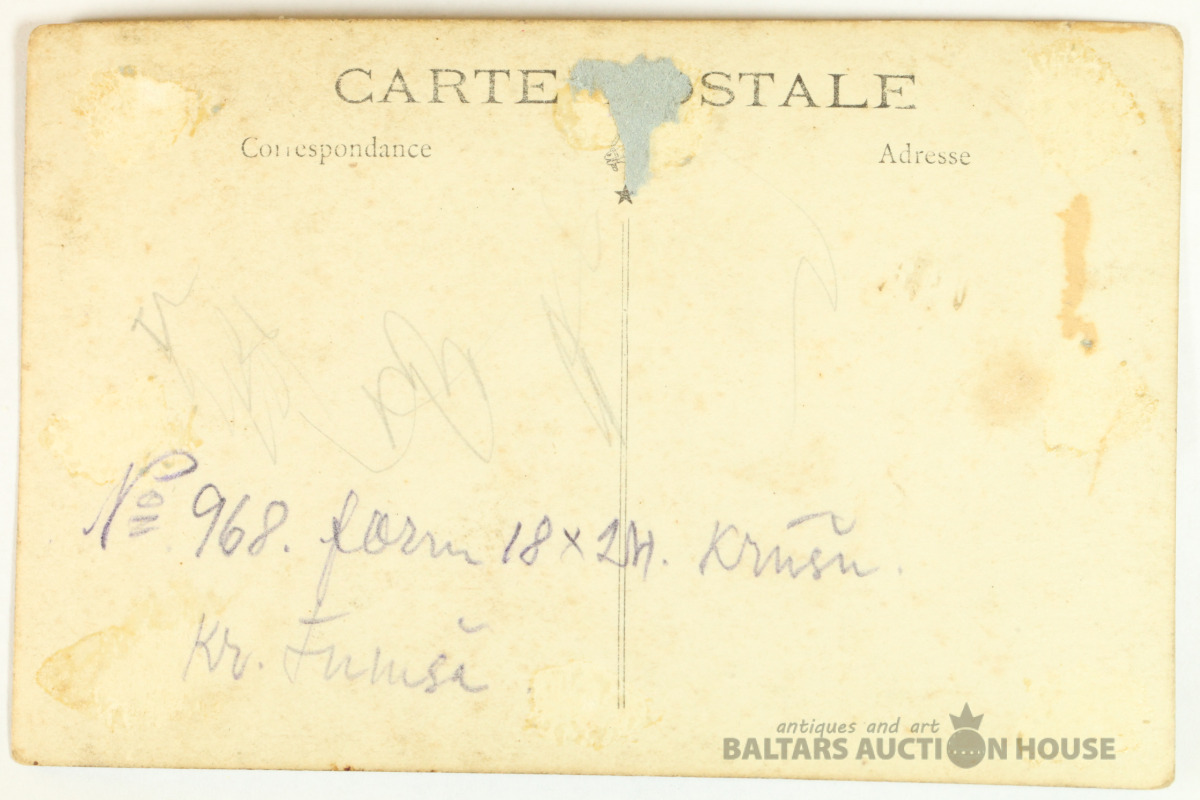 CARTE POSTALE
Correspondance
Adresse
№ 968. form 18 x 24. Krūšu.
Kr.
antiques and art
BALTARS AUCTION HOUSE